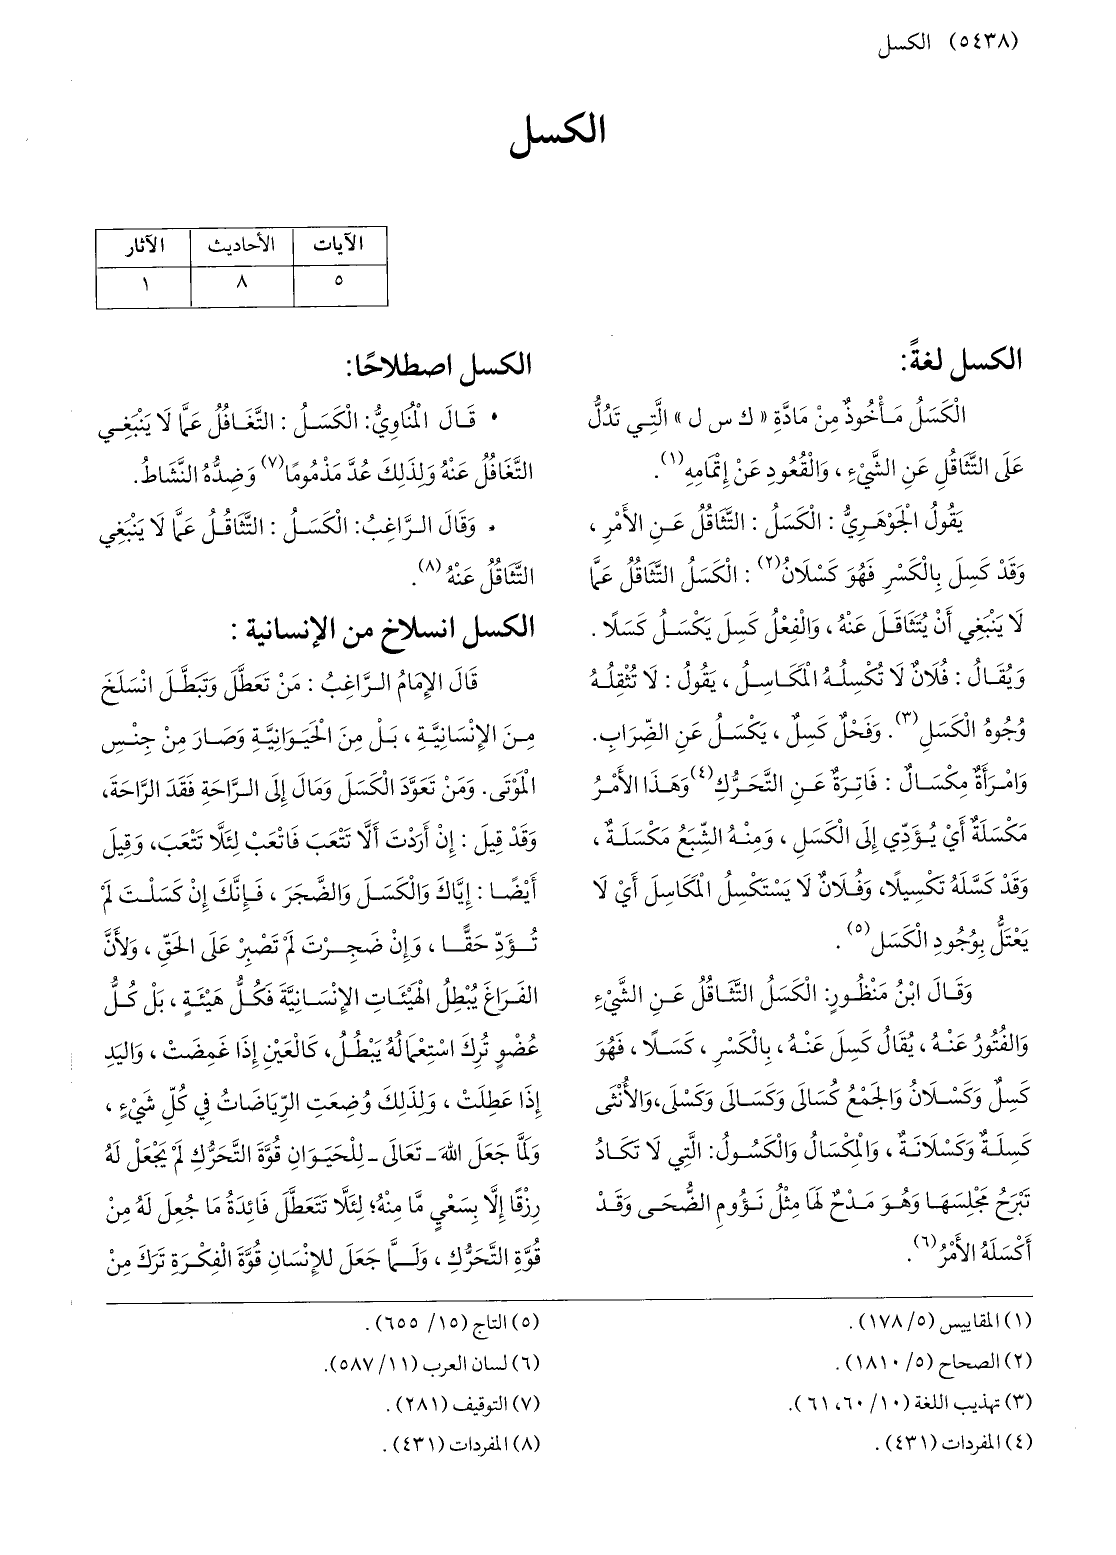 (٥٤٣٨) الكسل
الكسل
الآيات الأحاديث الآثار
٥ ٨ ١
الكسل لغةً:
الْكَسَلُ مَأْخُوذٌ مِنْ مَادَّةِ «ك س ل» الَّتِي تَدُلُّ
عَلَى التَّثَاقُلِ عَنِ الشَّيْءِ ، وَالْقُعُودِ عَنْ إِتْمَامِهِ(١).
يَقُولُ الْجَوْهَرِيُّ : الْكَسَلُ : التَّثَاقُلُ عَنِ الأَمْرِ ،
وَقَدْ كَسِلَ بِالْكَسْرِ فَهُوَ كَسْلَانُ(٢) : الْكَسَلُ التَّثَاقُلُ عَمَّا
لَا يَنْبَغِي أَنْ يُتَثَاقَلَ عَنْهُ ، وَالْفِعْلُ كَسِلَ يَكْسَلُ كَسَلًا .
وَيُقَالُ : فُلَانٌ لَا تُكْسِلُهُ الْمَكَاسِلُ ، يَقُولُ : لَا تُثْقِلُهُ
وُجُوهُ الْكَسَلِ(٣). وَفَحْلٌ كَسِلٌ ، يَكْسَلُ عَنِ الضِّرَابِ.
وَامْرَأَةٌ مِكْسَالٌ : فَاتِرَةٌ عَنِ التَّحَرُّكِ(٤) وَهَذَا الأَمْرُ
مَكْسَلَةٌ أَيْ يُؤَدِّي إِلَى الْكَسَلِ ، وَمِنْهُ الشِّبَعُ مَكْسَلَةٌ ،
وَقَدْ كَسَّلَهُ تَكْسِيلًا، وَفُلَانٌ لَا يَسْتَكْسِلُ الْمَكَاسِلَ أَيْ لَا
يَعْتَلُّ بِوُجُودِ الْكَسَلِ(٥).
وَقَالَ ابْنُ مَنْظُورٍ: الْكَسَلُ التَّثَاقُلُ عَنِ الشَّيْءِ
وَالْفُتُورُ عَنْهُ ، يُقَالُ كَسِلَ عَنْهُ ، بِالْكَسْرِ ، كَسَلًا ، فَهُوَ
كَسِلٌ وَكَسْلَانُ وَالْجَمْعُ كُسَالَى وَكَسَالَى وَكَسْلَى،وَالأُنْثَى
كَسِلَةٌ وَكَسْلَانَةٌ ، وَالْمِكْسَالُ وَالْكَسُولُ: الَّتِي لَا تَكَادُ
تَبْرَحُ مَجْلِسَهَا وَهُوَ مَدْحٌ لَهَا مِثْلُ نَؤُومِ الضُّحَى وَقَدْ
أَكْسَلَهُ الأَمْرُ(٦).
الكسل اصطلاحًا:
• قَالَ الْمُنَاوِيُّ: الْكَسَلُ : التَّغَافُلُ عَمَّا لَا يَنْبَغِي
التَّغَافُلُ عَنْهُ وَلِذَلِكَ عُدَّ مَذْمُومًا(٧) وَضِدُّهُ النَّشَاطُ.
• وَقَالَ الرَّاغِبُ: الْكَسَلُ : التَّثَاقُلُ عَمَّا لَا يَنْبَغِي
التَّثَاقُلُ عَنْهُ (٨).
الكسل انسلاخ من الإنسانية :
قَالَ الإِمَامُ الرَّاغِبُ : مَنْ تَعَطَّلَ وَتَبَطَّلَ انْسَلَخَ
مِنَ الإِنْسَانِيَّةِ ، بَلْ مِنَ الْحَيَوَانِيَّةِ وَصَارَ مِنْ جِنْسِ
الْمَوْتَى. وَمَنْ تَعَوَّدَ الْكَسَلَ وَمَالَ إِلَى الرَّاحَةِ فَقَدَ الرَّاحَةَ،
وَقَدْ قِيلَ : إِنْ أَرَدْتَ أَلَّا تَتْعَبَ فَاتْعَبْ لِئَلَّا تَتْعَبَ، وَقِيلَ
أَيْضًا : إِيَّاكَ وَالْكَسَلَ وَالضَّجَرَ ، فَإِنَّكَ إِنْ كَسَلْتَ لَمْ
تُؤَدِّ حَقًّا ، وَإِنْ ضَجِرْتَ لَمْ تَصْبِرْ عَلَى الْحَقِّ ، وَلأَنَّ
الفَرَاغَ يُبْطِلُ الْهَيْئَاتِ الإِنْسَانِيَّةَ فَكُلُّ هَيْئَةٍ ، بَلْ كُلُّ
عُضْوٍ تُرِكَ اسْتِعْمَالُهُ يَبْطُلُ، كَالْعَيْنِ إِذَا غَمِضَتْ ، وَالْيَدِ
إِذَا عَطِلَتْ ، وَلِذَلِكَ وُضِعَتِ الرِّيَاضَاتُ فِي كُلِّ شَيْءٍ ،
وَلَمَّا جَعَلَ اللهُ ـ تَعَالَى ـ لِلْحَيَوَانِ قُوَّةَ التَّحَرُّكِ لَمْ يَجْعَلْ لَهُ
رِزْقًا إِلَّا بِسَعْيٍ مَّا مِنْهُ؛ لِئَلَّا تَتَعَطَّلَ فَائِدَةُ مَا جُعِلَ لَهُ مِنْ
قُوَّةِ التَّحَرُّكِ ، وَلَمَّا جَعَلَ للإِنْسَانِ قُوَّةَ الْفِكْرَةِ تَرَكَ مِنْ
(١) المقاييس (٥/ ١٧٨) .
(٢) الصحاح (٥/ ١٨١٠) .
(٣) تهذيب اللغة (١٠/ ٦٠، ٦١).
(٤) المفردات (٤٣١) .
(٥) التاج (١٥/ ٦٥٥) .
(٦) لسان العرب (١١/ ٥٨٧).
(٧) التوقيف (٢٨١) .
(٨) المفردات (٤٣١) .